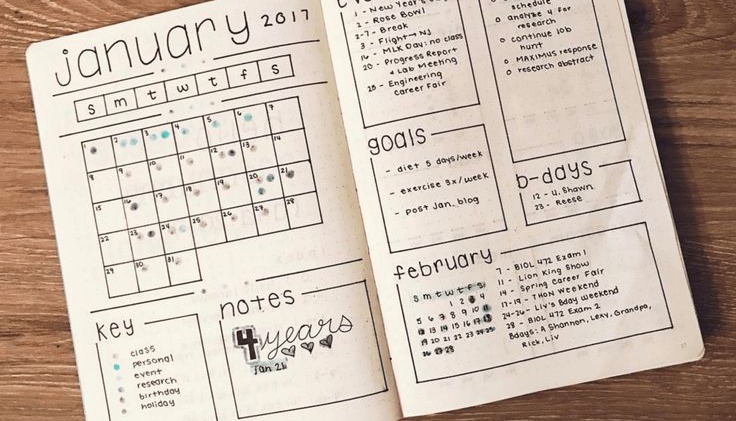 january 2017
s m t w t f s
1 2 3 4 5 6 7
8 9 10 11 12 13 14
15 16 17 18 19 20 21
22 23 24 25 26 27 28
29 30 31
key
class
personal
event
research
birthday
holiday
notes
4 years
jan 21
1 - New Year's
2 - Rose Bowl
2-7 - Break
3 - Flight → NJ
16 - MLK Day: no class
20 - Progress Report
& Lab Meeting
25 - Engineering
Career Fair
schedule
o analyze 4 for
research
o continue job
hunt
o MAXIMUS response
o research abstract
goals
- diet 5 days/week
- exercise 3x/week
- post Jan. blog
b-days
12 - U. Shawn
23 - Reese
february
s m t w t f s
1 2 3 4
5 6 7 8 9 10 11
12 13 14 15 16 17 18
19 20 21 22 23 24 25
26 27 28
7 - BIOL 472 Exam 1
11 - Lion King Show
14 - Spring Career Fair
17-19 - THON Weekend
24-26 - Liv's Bday Weekend
28 - BIOL 472 Exam 2
Bdays: A Shannon, Lexy, Grandpa,
Rick, Liv